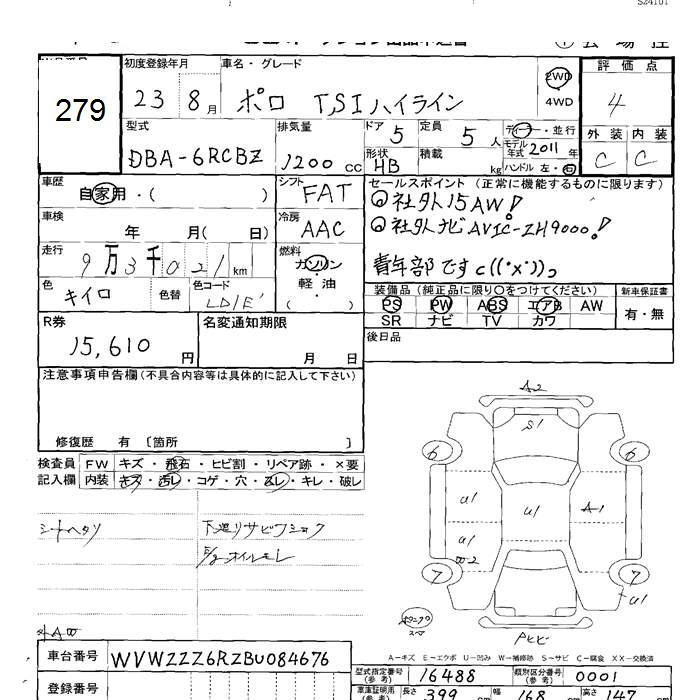 S24101
279
初度登録年月 車名・グレード 評価点
23 8月 ポロ TSIハイライン 2WD 4
4WD
型式 排気量 ドア 5 定員 5人 ディーラー・並行 外装 内装
DBA-6RCBZ 1200cc 形状 HB 積載 kg モデル年式 2011年 C C
ハンドル 左・右
車歴 自家用・( ) シフト FAT セールスポイント (正常に機能するものに限ります)
車検 年 月( 日) 冷房 AAC 社外15AW!
社外ナビAVIC-ZH9000!
走行 9万3千021km 燃料 ガソリン・軽油・( ) 青年部ですc((・x・))っ
色 キイロ 色替 色コード LD1E 装備品 (純正品に限り○をつけてください) 新車保証書
PS PW ABS エアB AW 有・無
SR ナビ TV カワ
R券 名変通知期限 後日品
15,610円 月 日
注意事項申告欄(不具合内容等は具体的に記入して下さい)
A2
S1
修復歴 有 〔箇所 〕
検査員 FW キズ・飛石・ヒビ割・リペア跡・×要
記入欄 内装 キズ・汚レ・コゲ・穴・スレ・キレ・破レ
6 6
U1 U1 A1
シートヘタリ 下廻りサビ
U1
W2
オイルモレ
7 7
U1
A-キズ E-エクボ U-凹み W-補修跡 S-サビ C-腐食 XX-交換済
車台番号 WVWZZZ6RZBU084676
型式指定番号(参考) 16488 類別区分番号(参考) 0001
登録番号
車庫証明用(参考) 長さ 399 幅 168 高さ 147cm